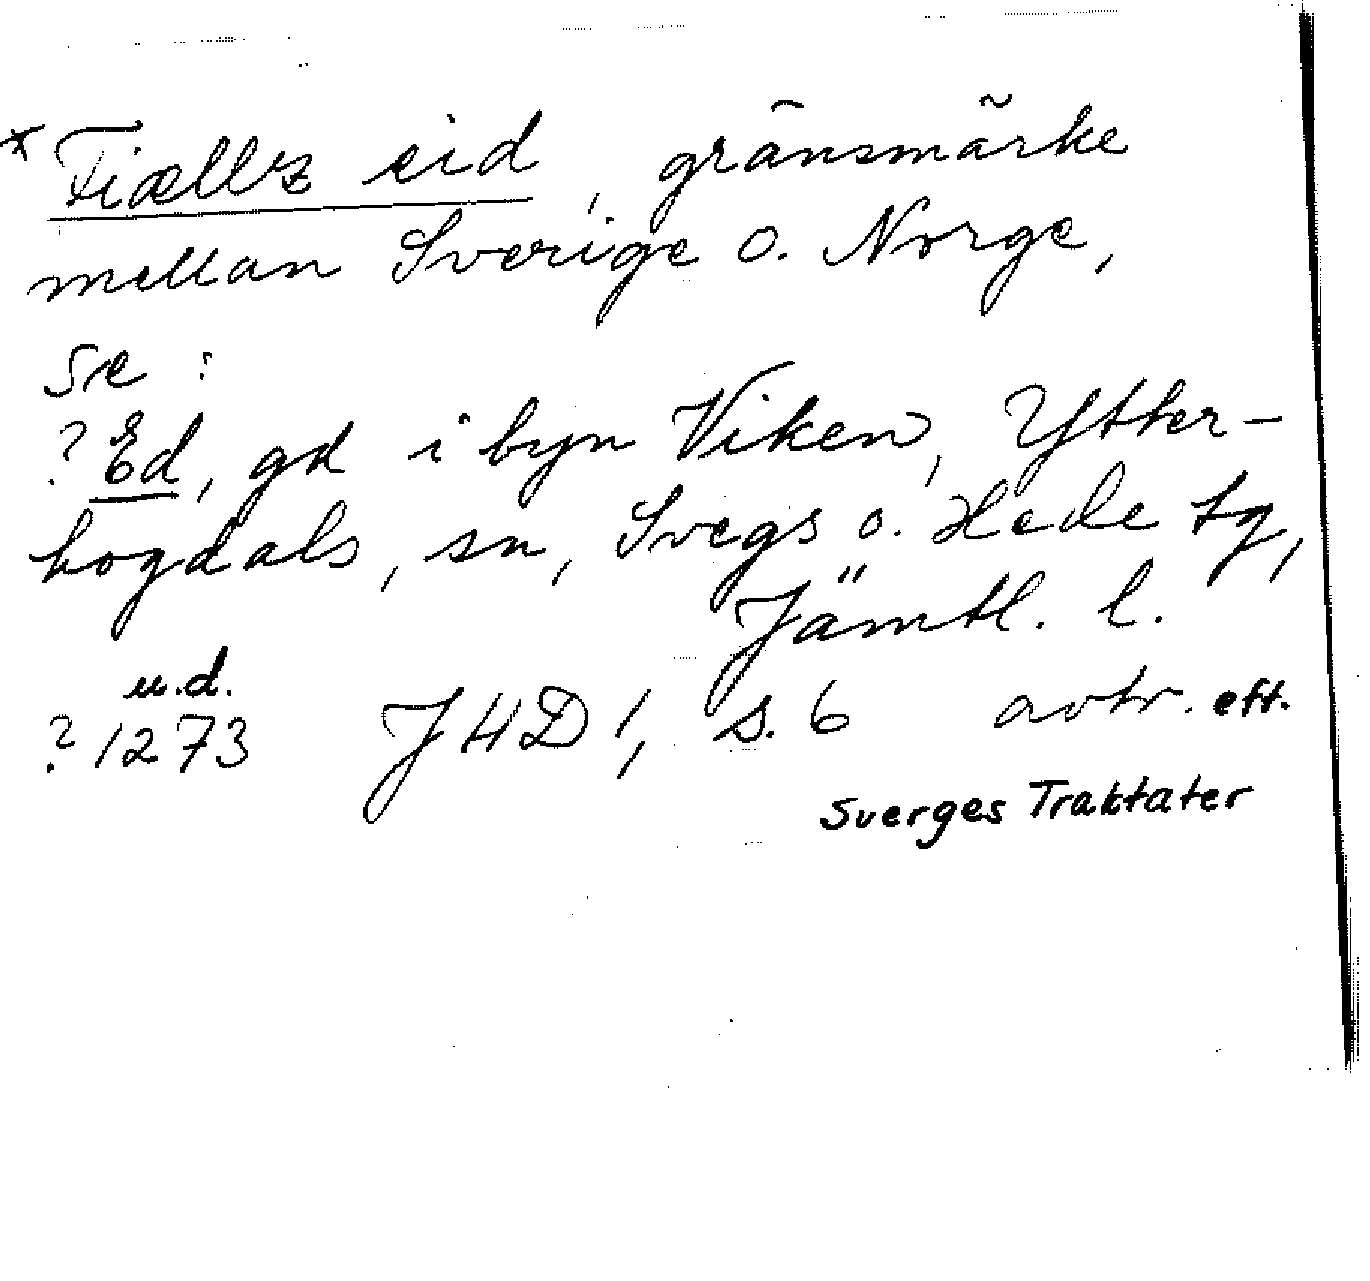 * Fiællz eid, gränsmärke
mellan Sverige o. Norge,
se:
? Ed, gd i byn Viken, Ytter-
hogdals, sn, Svegs o. Hede tg,
Jämtl. l.
u.d.
? 1273 JHD 1, s. 6 avtr. eft.
Sverges Traktater